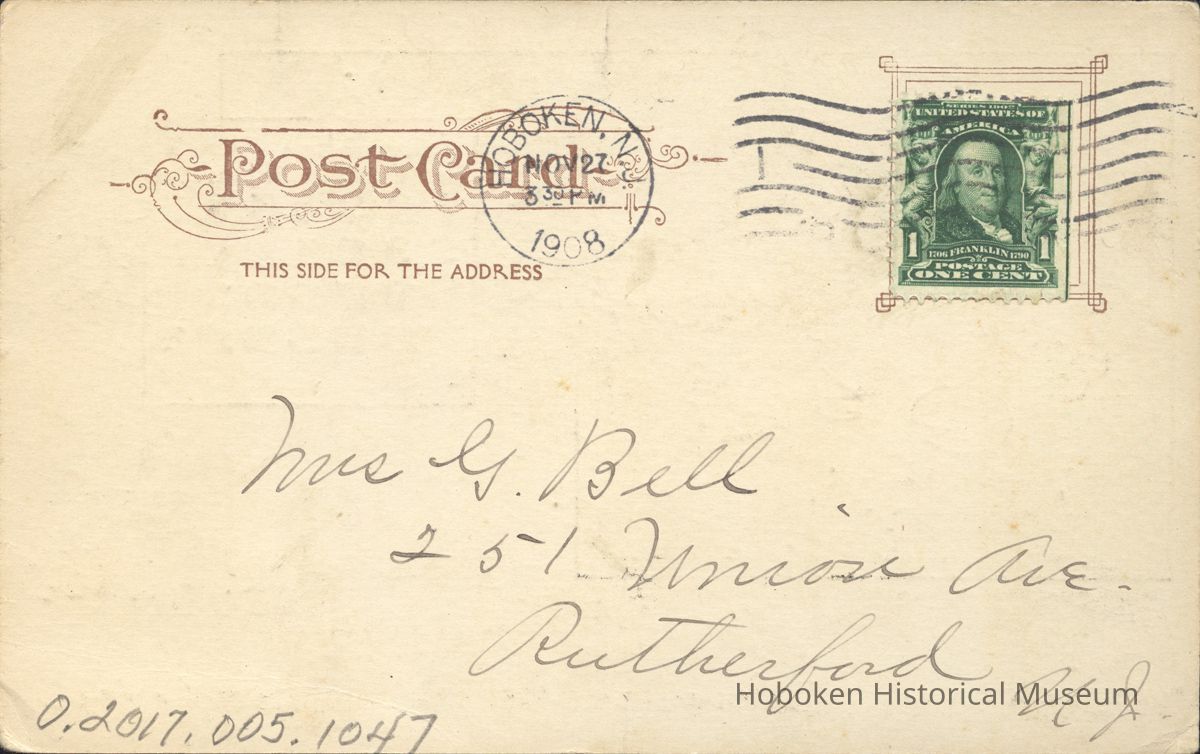 Post Card
THIS SIDE FOR THE ADDRESS
HOBOKEN, N.J.
NOV 27
3 30 P M
1908
SERIES 1902
UNITED STATES OF
AMERICA
1 1
1706 FRANKLIN 1790
POSTAGE
ONE CENT
Mrs G. Bell
251 Union Ave.
Rutherford
N.J.
Hoboken Historical Museum
0.2017.005.1047